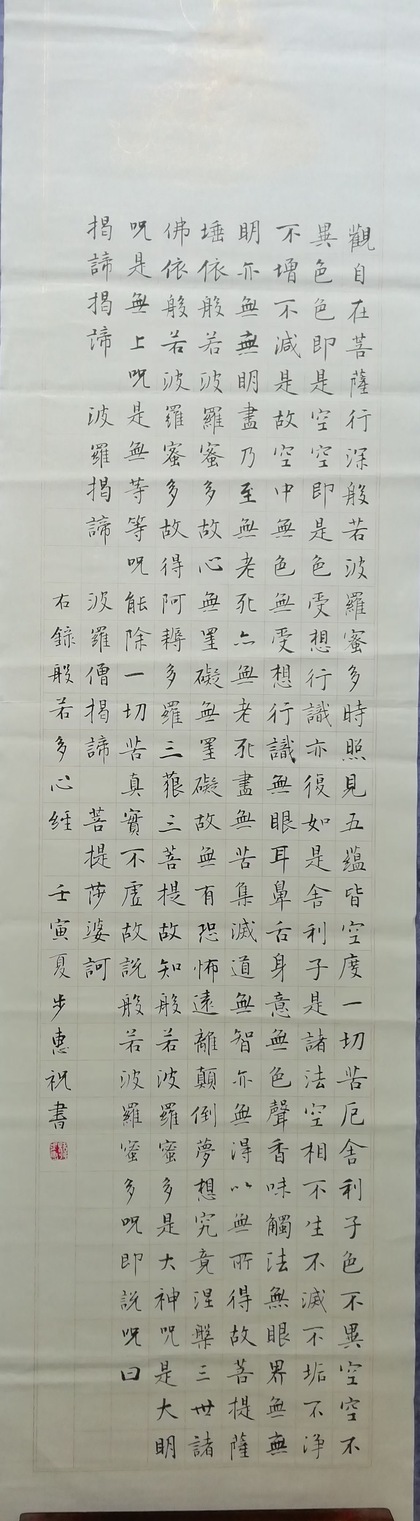 觀自在菩薩行深般若波羅蜜多時照見五蘊皆空度一切苦厄舍利子色不異空空不
異色色即是空空即是色受想行識亦復如是舍利子是諸法空相不生不滅不垢不淨
不增不減是故空中無色無受想行識無眼耳鼻舌身意無色聲香味觸法無眼界無無
明亦無無明盡乃至無老死亦無老死盡無苦集滅道無智亦無得以無所得故菩提薩
埵依般若波羅蜜多故心無罣礙無罣礙故無有恐怖遠離顛倒夢想究竟涅槃三世諸
佛依般若波羅蜜多故得阿耨多羅三藐三菩提故知般若波羅蜜多是大神呪是大明
呪是無上呪是無等等呪能除一切苦真實不虛故說般若波羅蜜多呪即說呪曰
揭諦揭諦 波羅揭諦 波羅僧揭諦 菩提莎婆訶
右錄般若多心經 壬寅夏步惠祝書